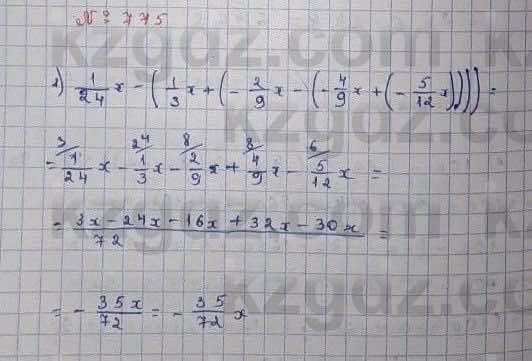 № 775
1) 1/24 x - (1/3 x + (- 2/9 x - (- 4/9 x + (- 5/12 x)))) =
= 3/ 1/24 x - 24/ 1/3 x - 8/ 2/9 x + 8/ 4/9 x - 6/ 5/12 x =
= 3x - 24x - 16x + 32x - 30x / 72 =
= - 35x/72 = - 35/72 x
kzgdz.com
kzgdz.com
kzgdz.com